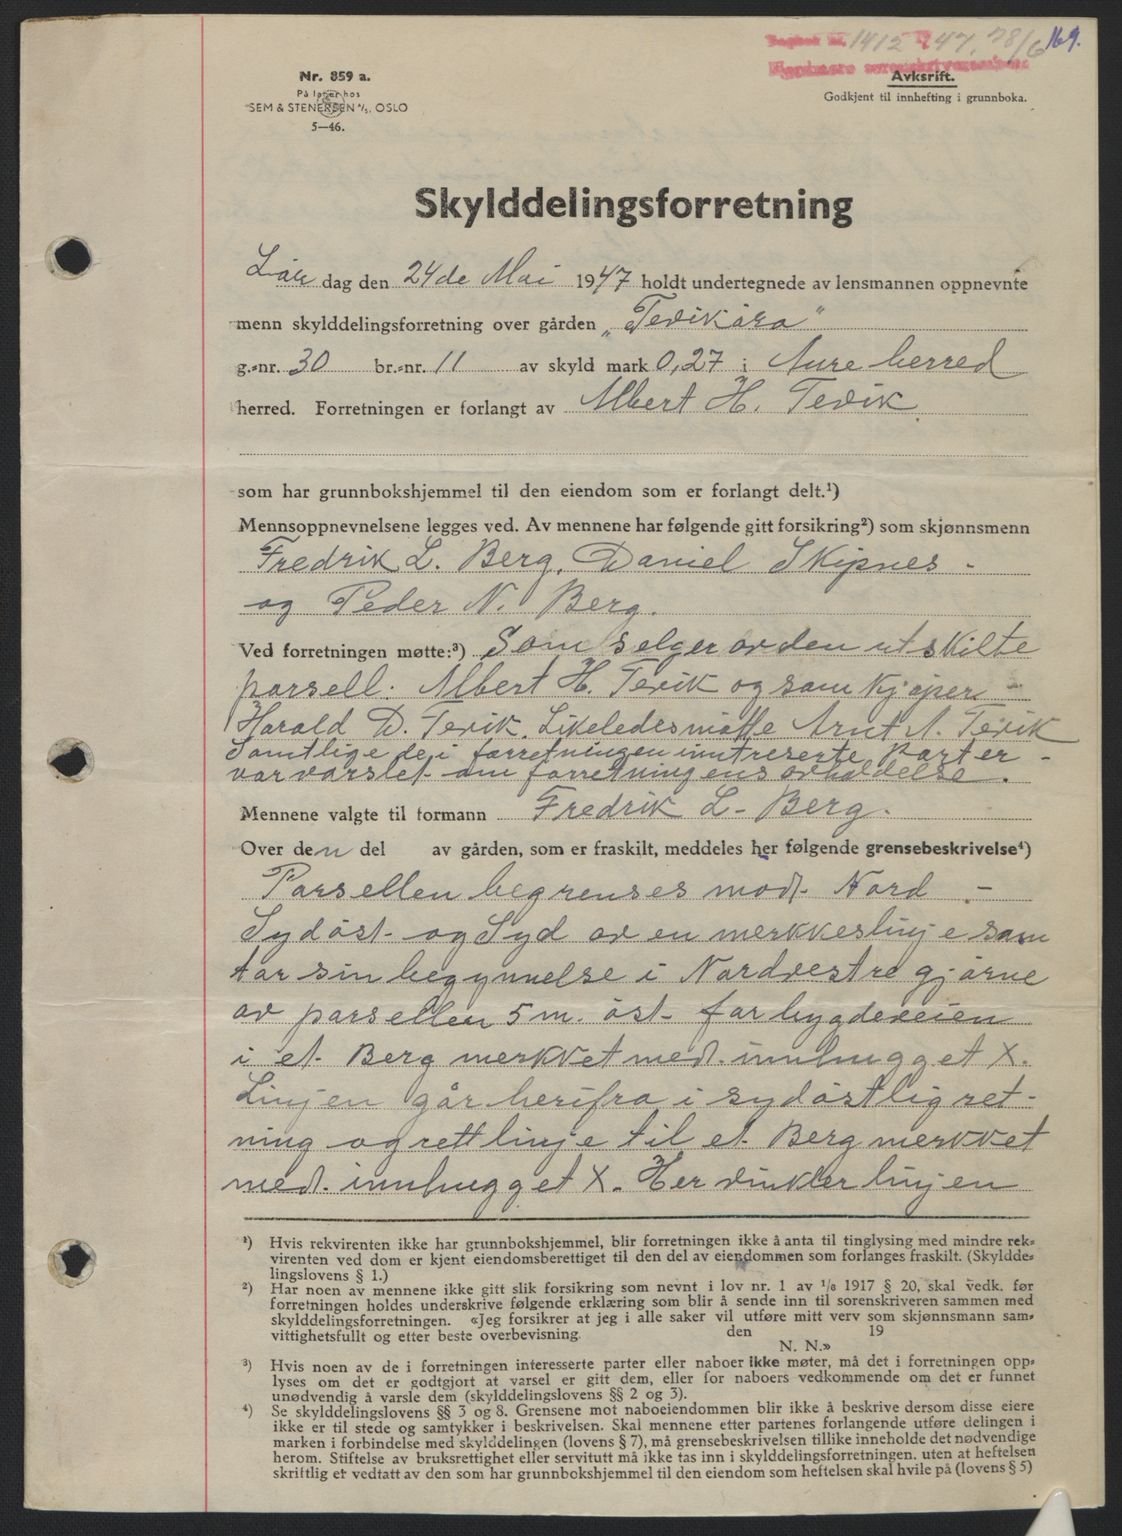 Dagbok nr. 1412 1947. 28/6 169.
Nordmøre sorenskriverembete
Nr. 859 a.
På lager hos
SEM & STENERSEN A/S. OSLO
5—46.
Avksrift.
Godkjent til innhefting i grunnboka.
Skylddelingsforretning
Lör dag den 24de Mai 1947 holdt undertegnede av lensmannen oppnevnte
menn skylddelingsforretning over gården „Tevikåra"
g.-nr. 30 br.-nr. 11 av skyld mark 0,27 i Aure herred
herred. Forretningen er forlangt av Albert H. Tevik
som har grunnbokshjemmel til den eiendom som er forlangt delt.¹)
Mennsoppnevnelsene legges ved. Av mennene har følgende gitt forsikring²) som skjønnsmenn
Fredrik L. Berg, Daniel Skipnes -
og Peder N. Berg.
Ved forretningen møtte:³) Som selger av den utskilte
parsell: Albert H. Tevik og som kjøper -
Harald D. Tevik. Likeledes møtte Arnt A. Tevik
Samtlige de i forretningen inntreserte parter -
var varslet om forretningens avholdelse.
Mennene valgte til formann Fredrik L. Berg.
Over den del av gården, som er fraskilt, meddeles her følgende grensebeskrivelse⁴)
Parsellen begrenses mot Nord -
Sydöst- og Syd av en merkkeslinje som
tar sin begynnelse i Nordvestre gjörne
av parsellen 5 m. öst for bygdeveien
i et Berg merkket med innhugget X.
Linjen går herifra i sydöstlig ret-
ning og rettlinje til et Berg merkket
med innhugget X. Her vinkler linjen
¹) Hvis rekvirenten ikke har grunnbokshjemmel, blir forretningen ikke å anta til tinglysing med mindre rek-
virenten ved dom er kjent eiendomsberettiget til den del av eiendommen som forlanges fraskilt. (Skyldde-
lingslovens § 1.)
²) Har noen av mennene ikke gitt slik forsikring som nevnt i lov nr. 1 av 1/6 1917 § 20, skal vedk. før
forretningen holdes underskrive følgende erklæring som blir å sende inn til sorenskriveren sammen med
skylddelingsforretningen. «Jeg forsikrer at jeg i alle saker vil utføre mitt verv som skjønnsmann sam-
vittighetsfullt og etter beste overbevisning. den 19
N. N.»
³) Hvis noen av de i forretningen interesserte parter eller naboer ikke møter, må det i forretningen opp-
lyses om det er godtgjort at varsel er gitt dem, eller for naboers vedkommende om det er funnet
unødvendig å varsle dem (skylddelingslovens §§ 2 og 3).
⁴) Se skylddelingslovens §§ 3 og 8. Grensene mot naboeiendommen blir ikke å beskrive dersom disse eiere
ikke er til stede og samtykker i beskrivelsen. Skal mennene etter partenes forlangende utføre delingen i
marken i forbindelse med skylddelingen (lovens § 7), må grensebeskrivelsen tillike inneholde det nødvendige
herom. Stiftelse av bruksrettighet eller servitutt må ikke tas inn i skylddelingsforretningen, uten at heftelsen
skriftlig er vedtatt av den som har grunnbokshjemmel til den eiendom som heftelsen skal hvile på (lovens § 5)